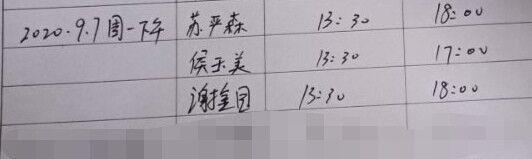 2020.9.7周一下午 苏严森 13:30 18:00
侯玉美 13:30 17:00
谢挂园 13:30 18:00